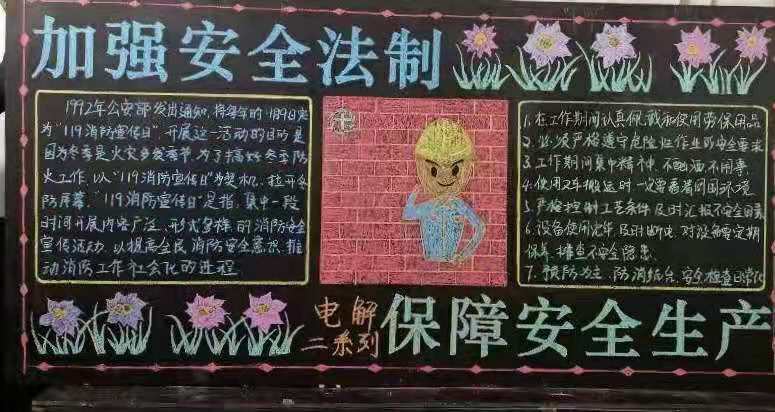 加强安全法制
1992年公安部发出通知,将每年的11月9日定
为“119消防宣传日”,开展这一活动的目的是
因为冬季是火灾多发季节,为了搞好冬季防
火工作,以“119消防宣传日”为契机,拉开冬
防屏幕,“119消防宣传日”是指,集中一段
时间开展内容广泛、形式多样的消防安全
宣传活动,以提高全民消防安全意识,推
动消防工作社会化的进程
1.在工作期间认真佩戴和使用劳保用品
2.必须严格遵守危险性作业的安全要求
3.工作期间集中精神,不酗酒,不闹事
4.使用叉车搬运时一定要看清周围环境
5.严格控制工艺条件及时汇报不安全因素
6.设备使用完毕及时断电,对设备要定期
保养,排查不安全隐患
7.预防为主,防消结合,安全检查日常化
电解
二系列
保障安全生产